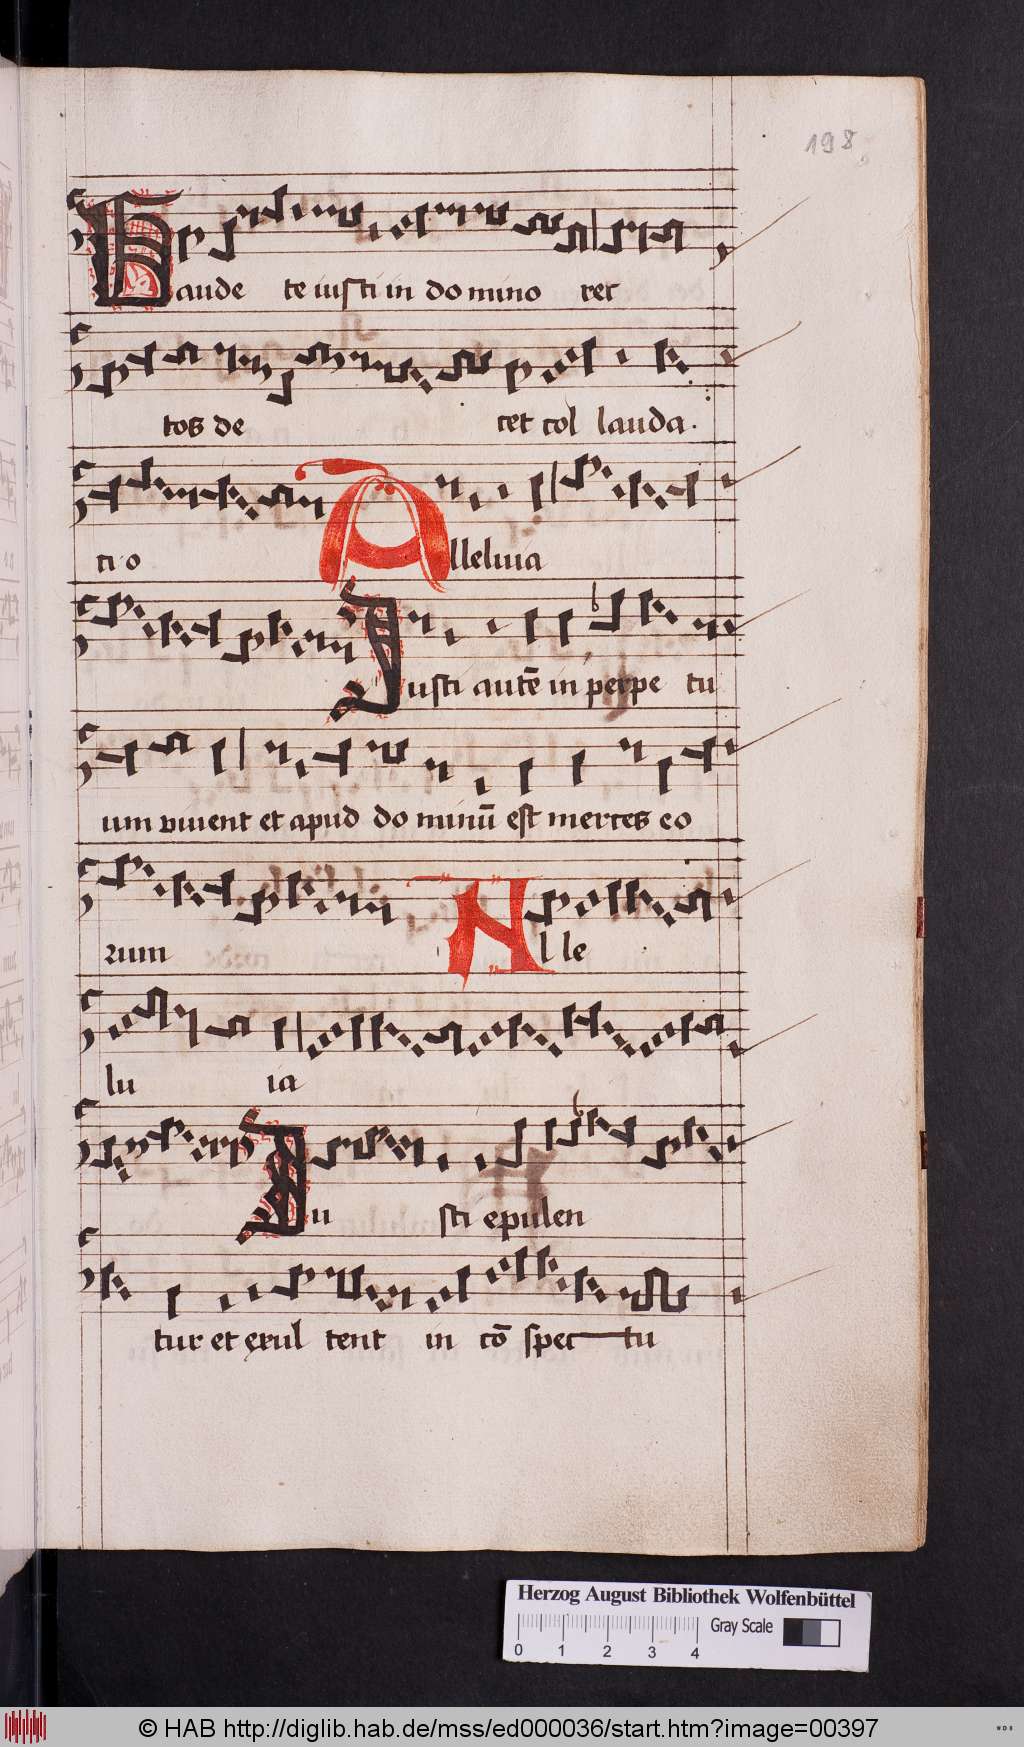 198
Gaude te iusti in do mino rec
tos de cet col lauda.
ti o Alleluia
Justi autē in perpe tu
um viuent et apud do minū est merces eo
rum Alle
lu ia
Ju sti epulen
tur et exul tent in cō spec tu
Herzog August Bibliothek Wolfenbüttel
Gray Scale
0 1 2 3 4
© HAB http://diglib.hab.de/mss/ed000036/start.htm?image=00397